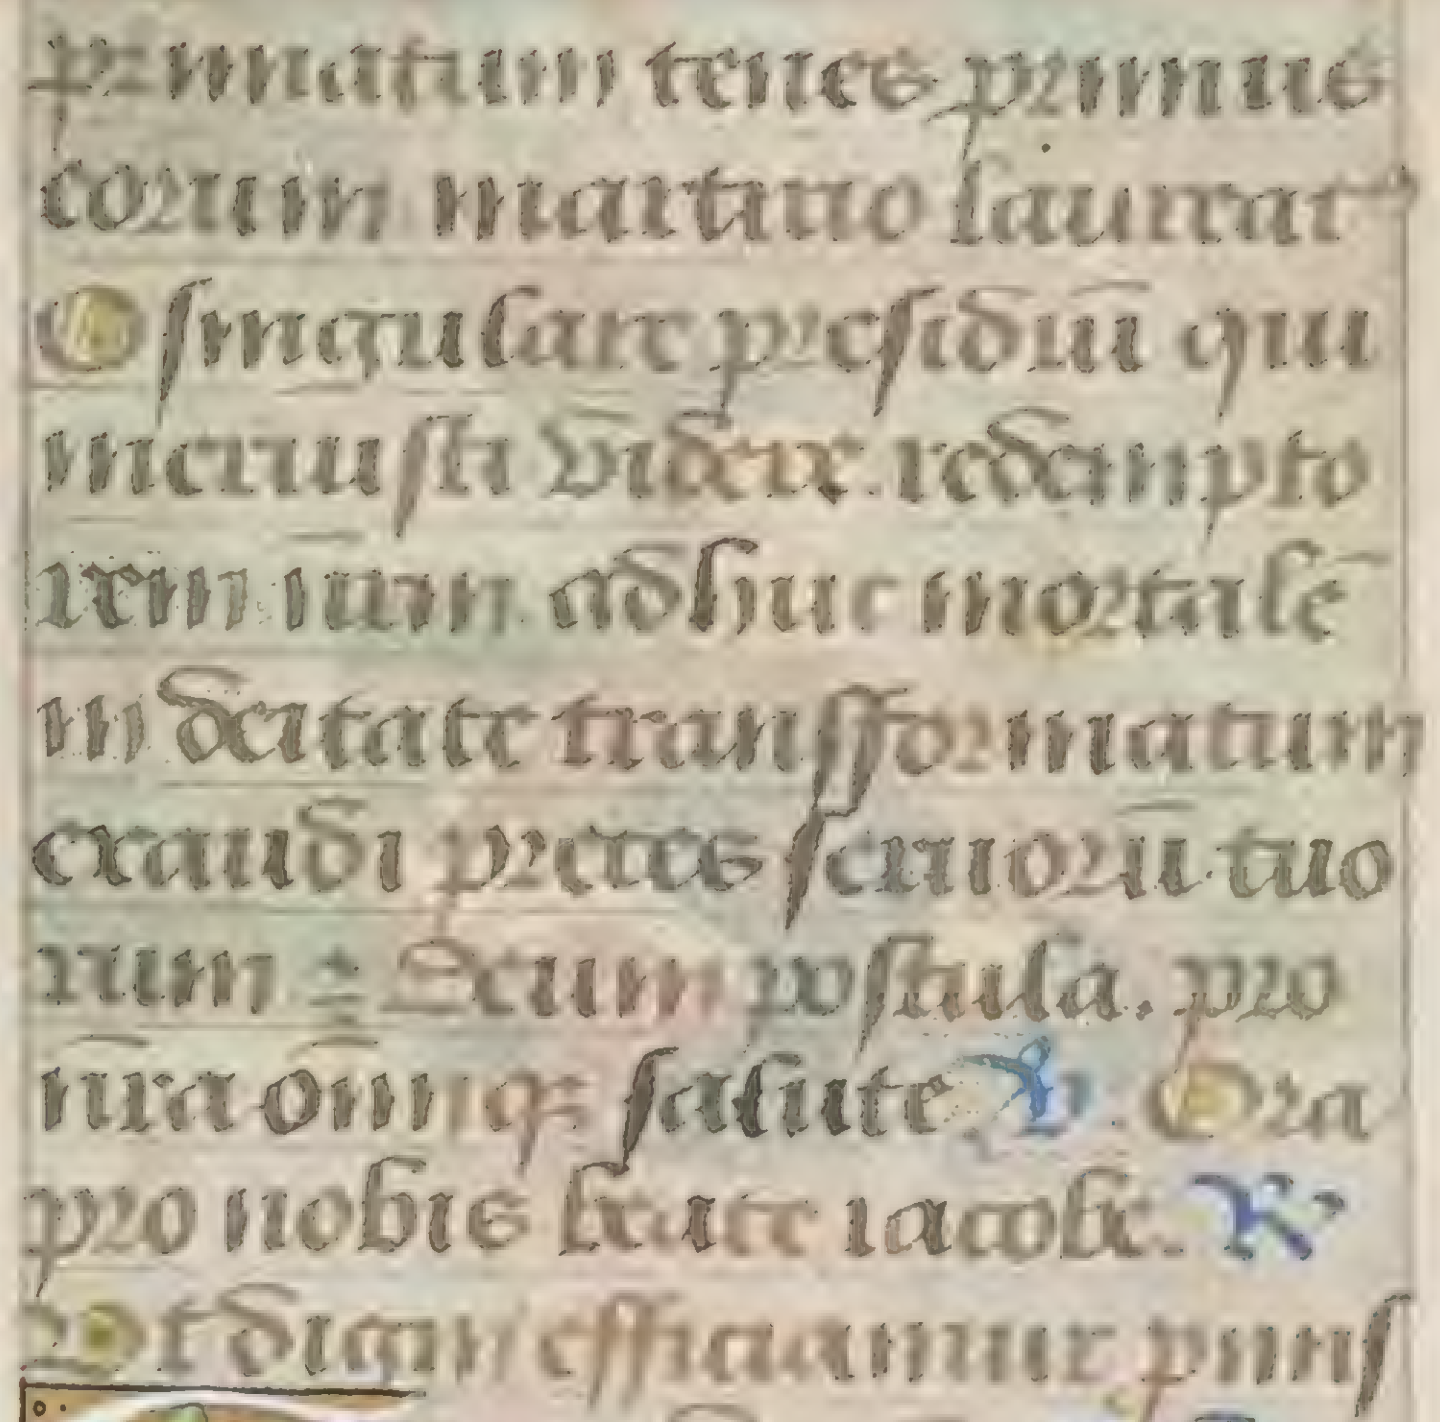 primatum tenes primus
eorum martirio laureat⁹
O singulare presidiū qui
meruisti videre. redempto
rem tuum adhuc mortalē
in deitate transformatum
exaudi preces seruorū tuo
rum ⁊ Ecum postula. pro
nr̄a om̄iqꝫ salute ℣. Ora
pro nobis beate iacobe. ℟
Vt digni efficiamur p